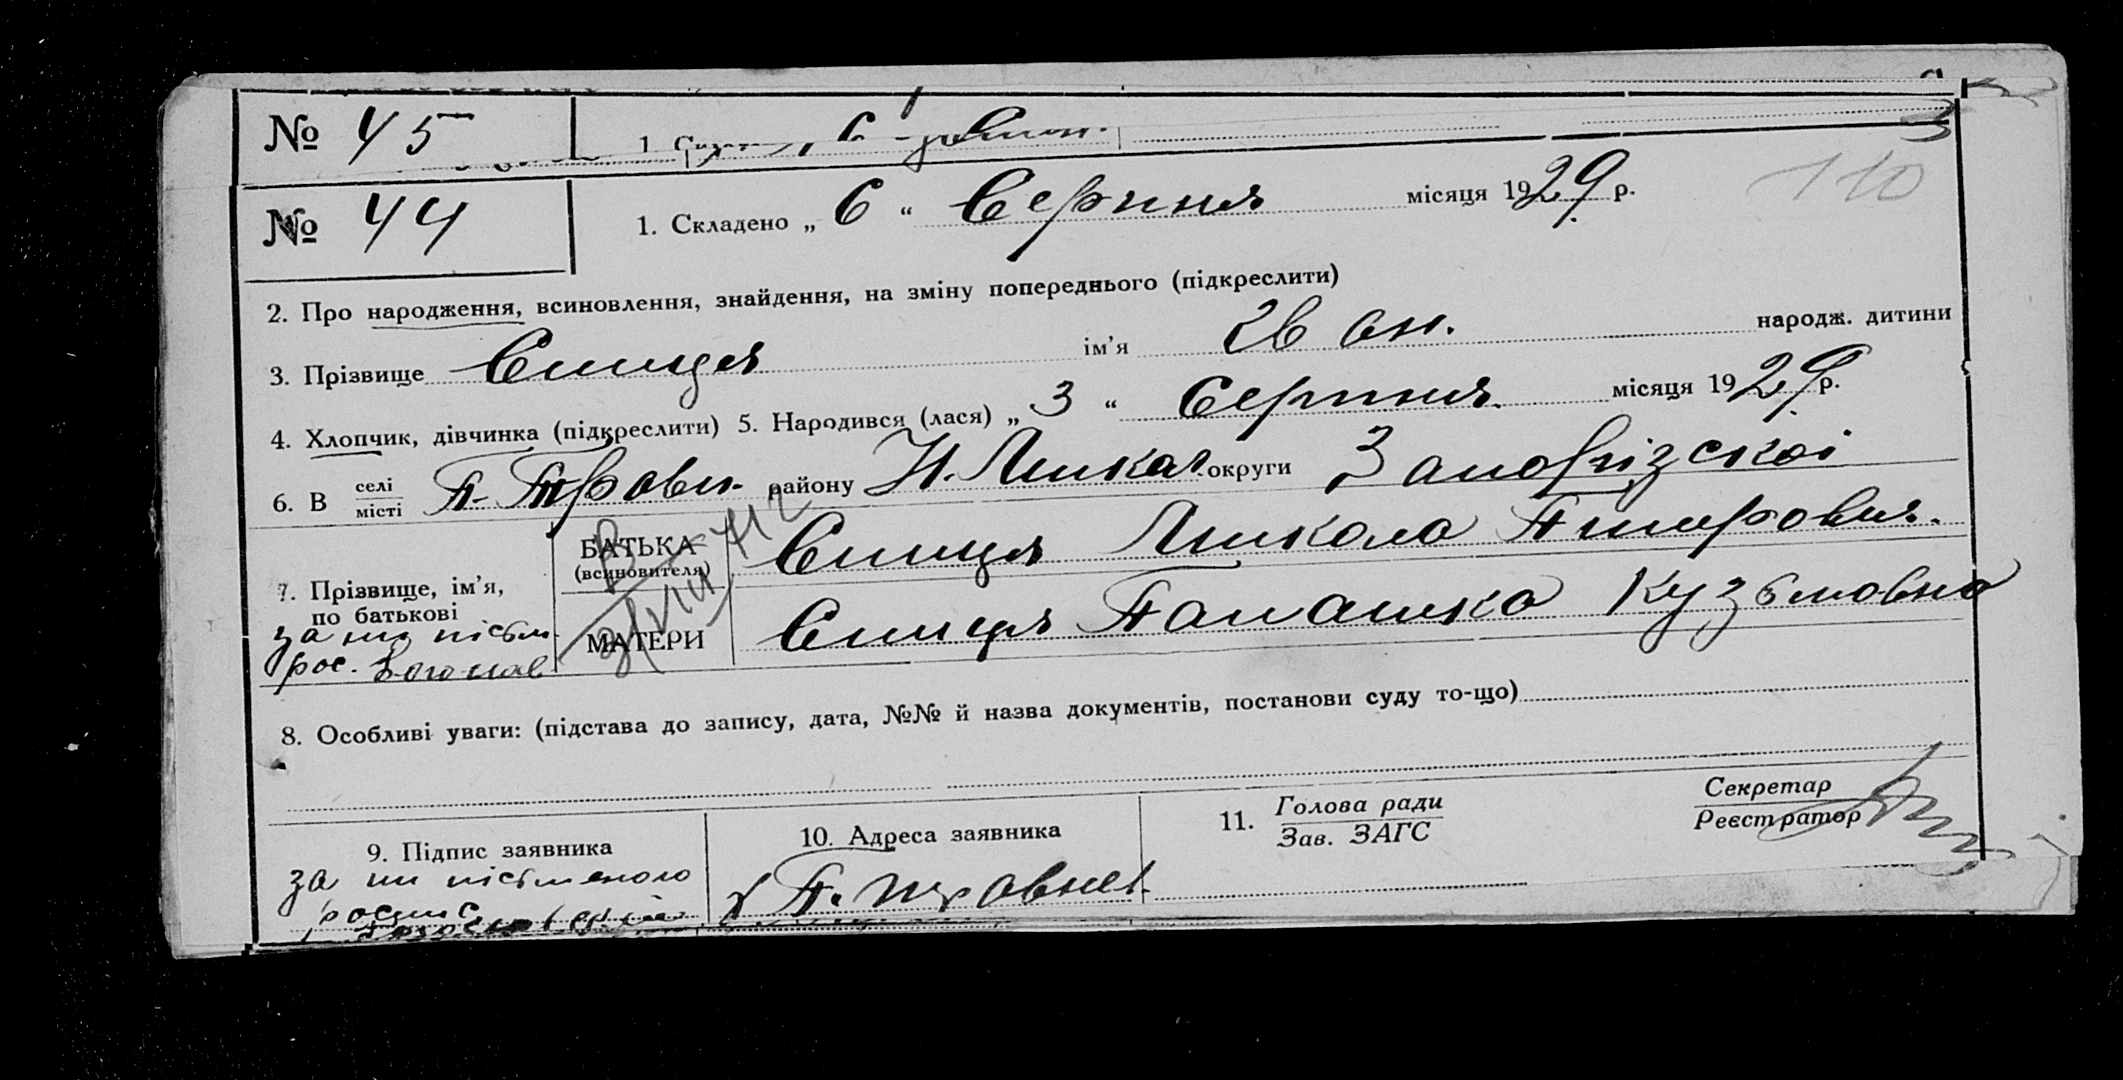 № 45
№ 44
1. Складено „ 6 “ Серпня місяця 1929 р.
110
2. Про народження, всиновлення, знайдення, на зміну попереднього (підкреслити)
3. Прізвище Спиця ім’я Іван. народж. дитини
4. Хлопчик, дівчинка (підкреслити) 5. Народився (лася) „ 3 “ Серпня. місяця 1929 р.
6. В селі місті П. району округи
7. Прізвище, ім’я, по батькові
БАТЬКА (всиновителя) Спиця Микола
МАТЕРИ Спиця Кузьмовна
за ни пісьм
рос.
8. Особливі уваги: (підстава до запису, дата, №№ й назва документів, постанови суду то-що)
9. Підпис заявника
за ни пісьменого
роспис
10. Адреса заявника
11. Голова ради Зав. ЗАГС
Секретар Реєстратор